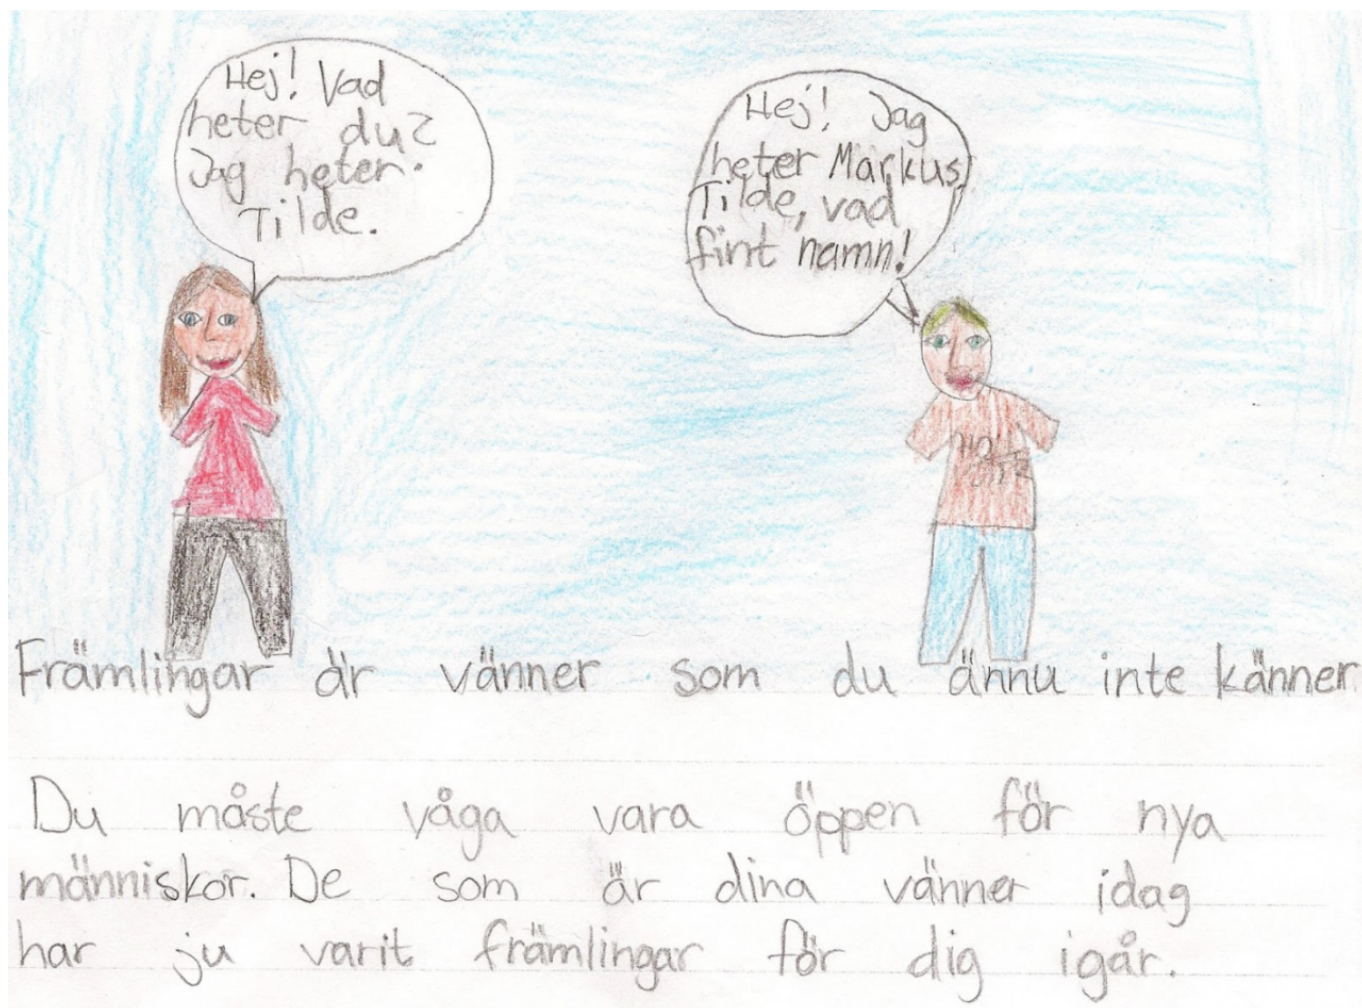 Hej! Vad
heter du?
Jag heter
Tilde.
Hej! Jag
heter Markus,
Tilde, vad
fint namn!
Främlingar är vänner som du ännu inte känner
Du måste våga vara öppen för nya
människor. De som är dina vänner idag
har ju varit främlingar för dig igår.